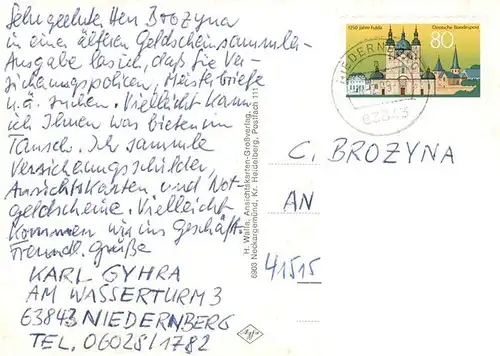 Sehr geehrter Herr Brozyna
in einer älteren Geldscheinsammler-
Ausgabe las ich, daß sie Ver-
sicherungspolicen, Meisterbriefe
u.ä. suchen. Vielleicht kann
ich Ihnen was bieten im
Tausch. Ich sammle
Versicherungsschilder,
Ansichtskarten und Not-
geldscheine. Vielleicht
kommen wir ins Geschäft.
Freundl. Grüße
KARL GYHRA
AM WASSERTURM 3
63843 NIEDERNBERG
TEL. 06028/1782
H. Walla, Ansichtskarten-Großverlag,
6903 Neckargemünd, Kr. Heidelberg, Postfach 111
1250 Jahre Fulda
Deutsche Bundespost
80
NIEDERNB
63843
C. BROZYNA
AN
41515